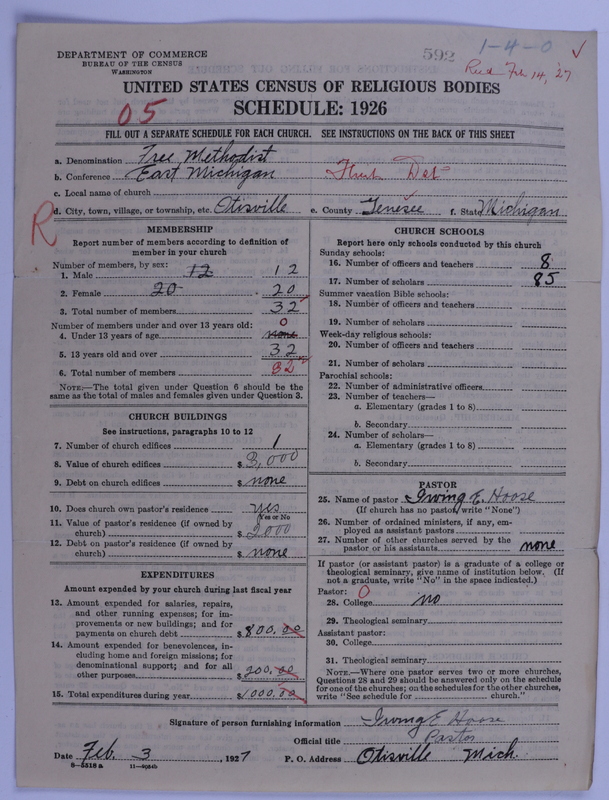 DEPARTMENT OF COMMERCE
BUREAU OF THE CENSUS
WASHINGTON
592
1-4-0 ✓
Recd Feb 14, '27
UNITED STATES CENSUS OF RELIGIOUS BODIES
SCHEDULE: 1926
05
FILL OUT A SEPARATE SCHEDULE FOR EACH CHURCH. SEE INSTRUCTIONS ON THE BACK OF THIS SHEET
a. Denomination Free Methodist
b. Conference East Michigan Flint Dist
c. Local name of church
d. City, town, village, or township, etc. Otisville e. County Genesee f. State Michigan
R
MEMBERSHIP
Report number of members according to definition of
member in your church
Number of members, by sex:
1. Male 12 12
2. Female 20 20
3. Total number of members 32
Number of members under and over 13 years old: 0
4. Under 13 years of age none
5. 13 years old and over 32
6. Total number of members 32
NOTE.—The total given under Question 6 should be the
same as the total of males and females given under Question 3.
CHURCH BUILDINGS
See instructions, paragraphs 10 to 12
7. Number of church edifices 1
8. Value of church edifices $ 3,000
9. Debt on church edifices $ none
10. Does church own pastor's residence yes
(Yes or No)
11. Value of pastor's residence (if owned by
church) $ 2000
12. Debt on pastor's residence (if owned by
church) $ none
EXPENDITURES
Amount expended by your church during last fiscal year
13. Amount expended for salaries, repairs,
and other running expenses; for im-
provements or new buildings; and for
payments on church debt $ 800.00
14. Amount expended for benevolences, in-
cluding home and foreign missions; for
denominational support; and for all
other purposes $ 200.00
15. Total expenditures during year $ 1000.00
CHURCH SCHOOLS
Report here only schools conducted by this church
Sunday schools:
16. Number of officers and teachers 8
17. Number of scholars 85
Summer vacation Bible schools:
18. Number of officers and teachers
19. Number of scholars
Week-day religious schools:
20. Number of officers and teachers
21. Number of scholars
Parochial schools:
22. Number of administrative officers
23. Number of teachers—
a. Elementary (grades 1 to 8)
b. Secondary
24. Number of scholars—
a. Elementary (grades 1 to 8)
b. Secondary
PASTOR
25. Name of pastor Irving E. Hoose
(If church has no pastor, write "None")
26. Number of ordained ministers, if any, em-
ployed as assistant pastors
27. Number of other churches served by the
pastor or his assistants none
If pastor (or assistant pastor) is a graduate of a college or
theological seminary, give name of institution below. (If
not a graduate, write "No" in the space indicated.)
Pastor: 0
28. College no
29. Theological seminary
Assistant pastor:
30. College
31. Theological seminary
NOTE.—Where one pastor serves two or more churches,
Questions 28 and 29 should be answered only on the schedule
for one of the churches; on the schedules for the other churches,
write "See schedule for church."
Signature of person furnishing information Irving E Hoose
Official title Pastor
Date Feb. 3, 1927 P. O. Address Otisville Mich.
8—5518 a